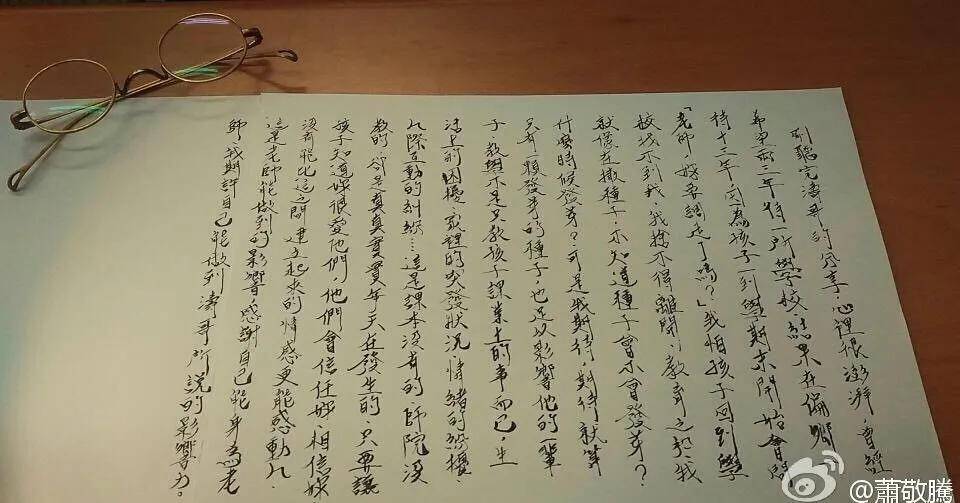 剛聽完濤哥的分享，心裡很澎湃，曾經
希望兩三年待一所學校，結果在偏鄉
待十三年，因為孩子一到學期末開始會問
「老師，妳要調走了嗎？」我怕孩子回到學
校找不到我，我捨不得離開，教育之於我
就像在撒種子，不知道種子會不會發芽？
什麼時候發芽？可是我期待，期待就算
只有一顆發芽的種子，也足以影響他的一輩
子，教學不是只教孩子課業上的事而已，生
活上的困擾，家裡的突發狀況，情緒的紛擾，
人際互動的糾紛…這是課本沒有的，師院沒
教的，卻是真真實實每天在發生的，只要讓
孩子知道妳很愛他們，他們會信任妳，相信妳，
沒有能比這之間建立起來的情感更能感動人
這是老師能做到的影響，感謝自己能身為老
師，我期許自己能做到濤哥所說的影響力。
@蕭敬騰